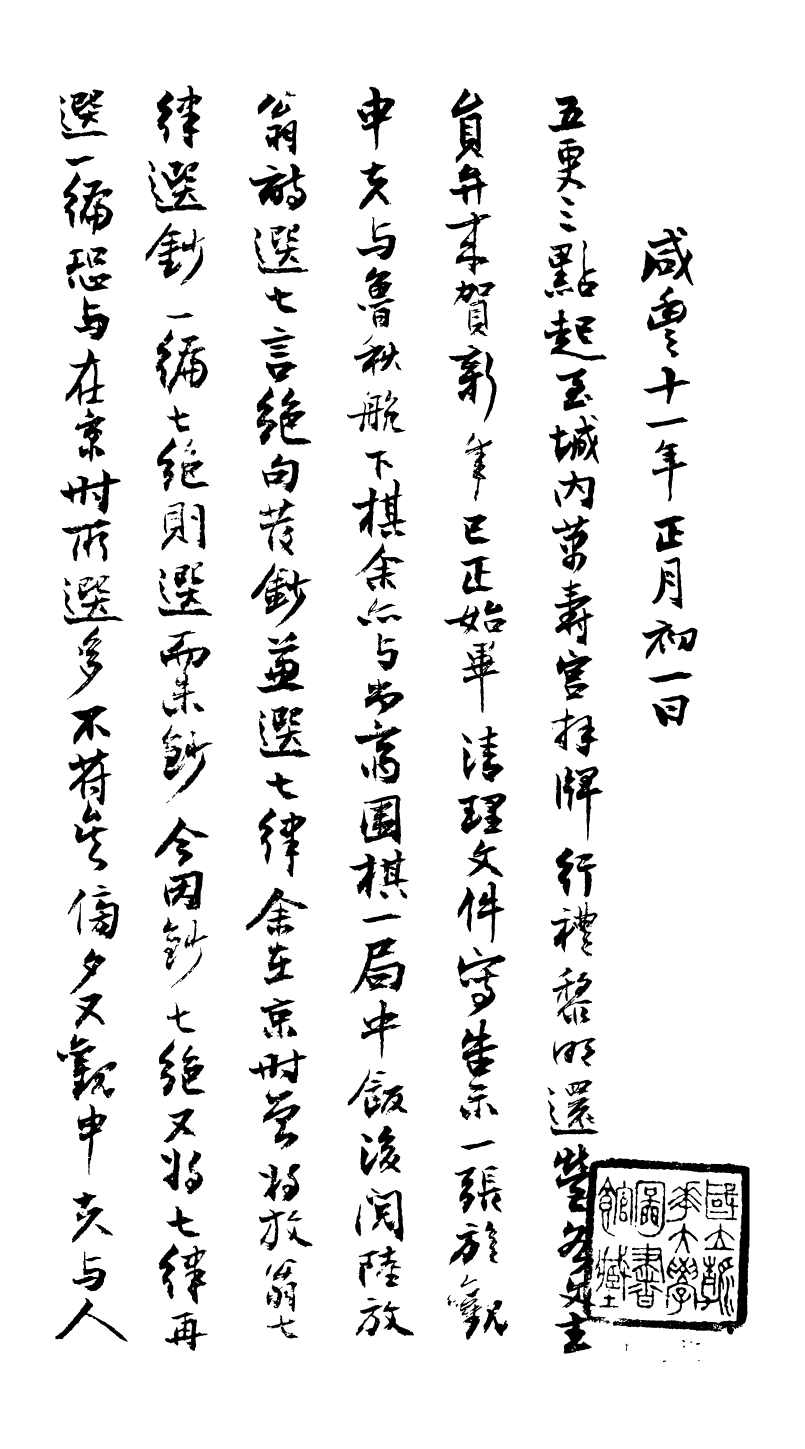 咸豐十一年正月初一日
五更三點起至城內萬壽宮拜牌行禮黎明還營各文武
員弁來賀新年巳正始畢清理文件寫告示一張旋觀
申夫与魯秋航下棋余亦与尚齋圍棋一局中飯後閱陸放
翁詩選七言絕句發鈔並選七律余在京時曾將放翁七
律選鈔一編七絕則選而未鈔今因鈔七絕又將七律再
選一編恐与在京時所選多不符矣傍夕又觀申夫与人
國立
東華大學
圖書
館藏